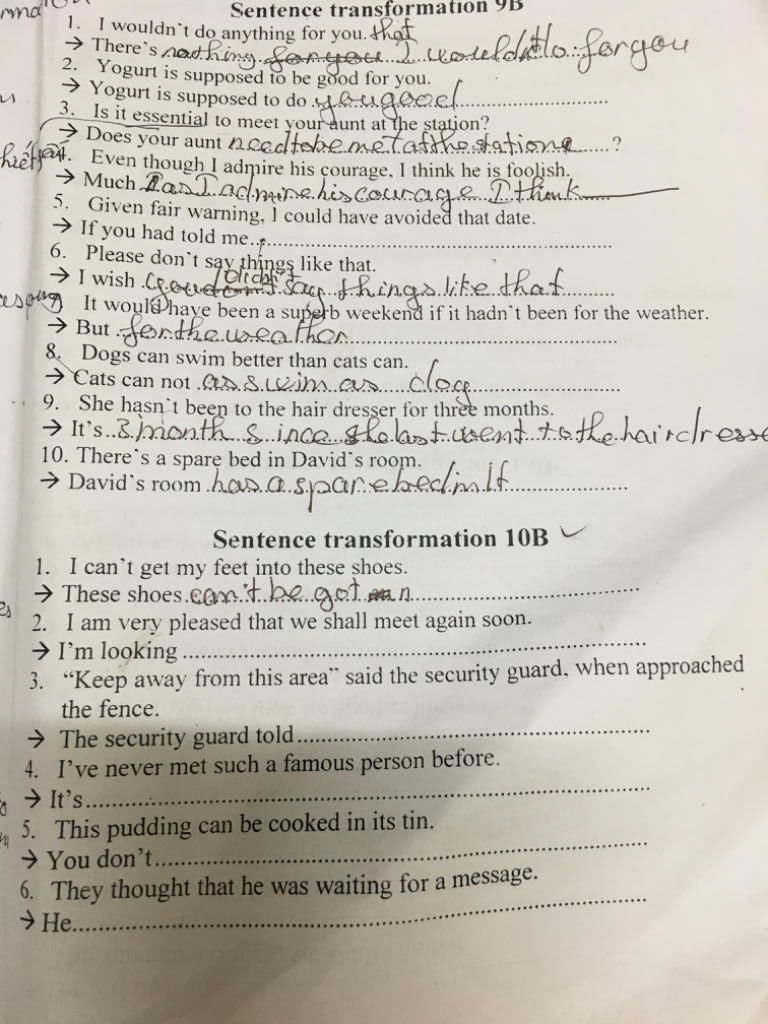 Sentence transformation 9B
1. I wouldn't do anything for you. that
→ There's nothing for you I would do for you
2. Yogurt is supposed to be good for you.
→ Yogurt is supposed to do you good
3. Is it essential to meet your aunt at the station?
→ Does your aunt need to be met at the station ?
4. Even though I admire his courage, I think he is foolish.
→ Much as I admire his courage I think
5. Given fair warning, I could have avoided that date.
→ If you had told me
6. Please don't say things like that.
→ I wish you didn't say things like that
It would have been a superb weekend if it hadn't been for the weather.
→ But for the weather
8. Dogs can swim better than cats can.
→ Cats can not as swim as dog
9. She hasn't been to the hair dresser for three months.
→ It's 3 months since she last went to the hairdresse
10. There's a spare bed in David's room.
→ David's room has a spare bed in it
Sentence transformation 10B
1. I can't get my feet into these shoes.
→ These shoes can't be got n
2. I am very pleased that we shall meet again soon.
→ I'm looking
3. "Keep away from this area" said the security guard, when approached
the fence.
→ The security guard told
4. I've never met such a famous person before.
→ It's
5. This pudding can be cooked in its tin.
→ You don't
6. They thought that he was waiting for a message.
→ He